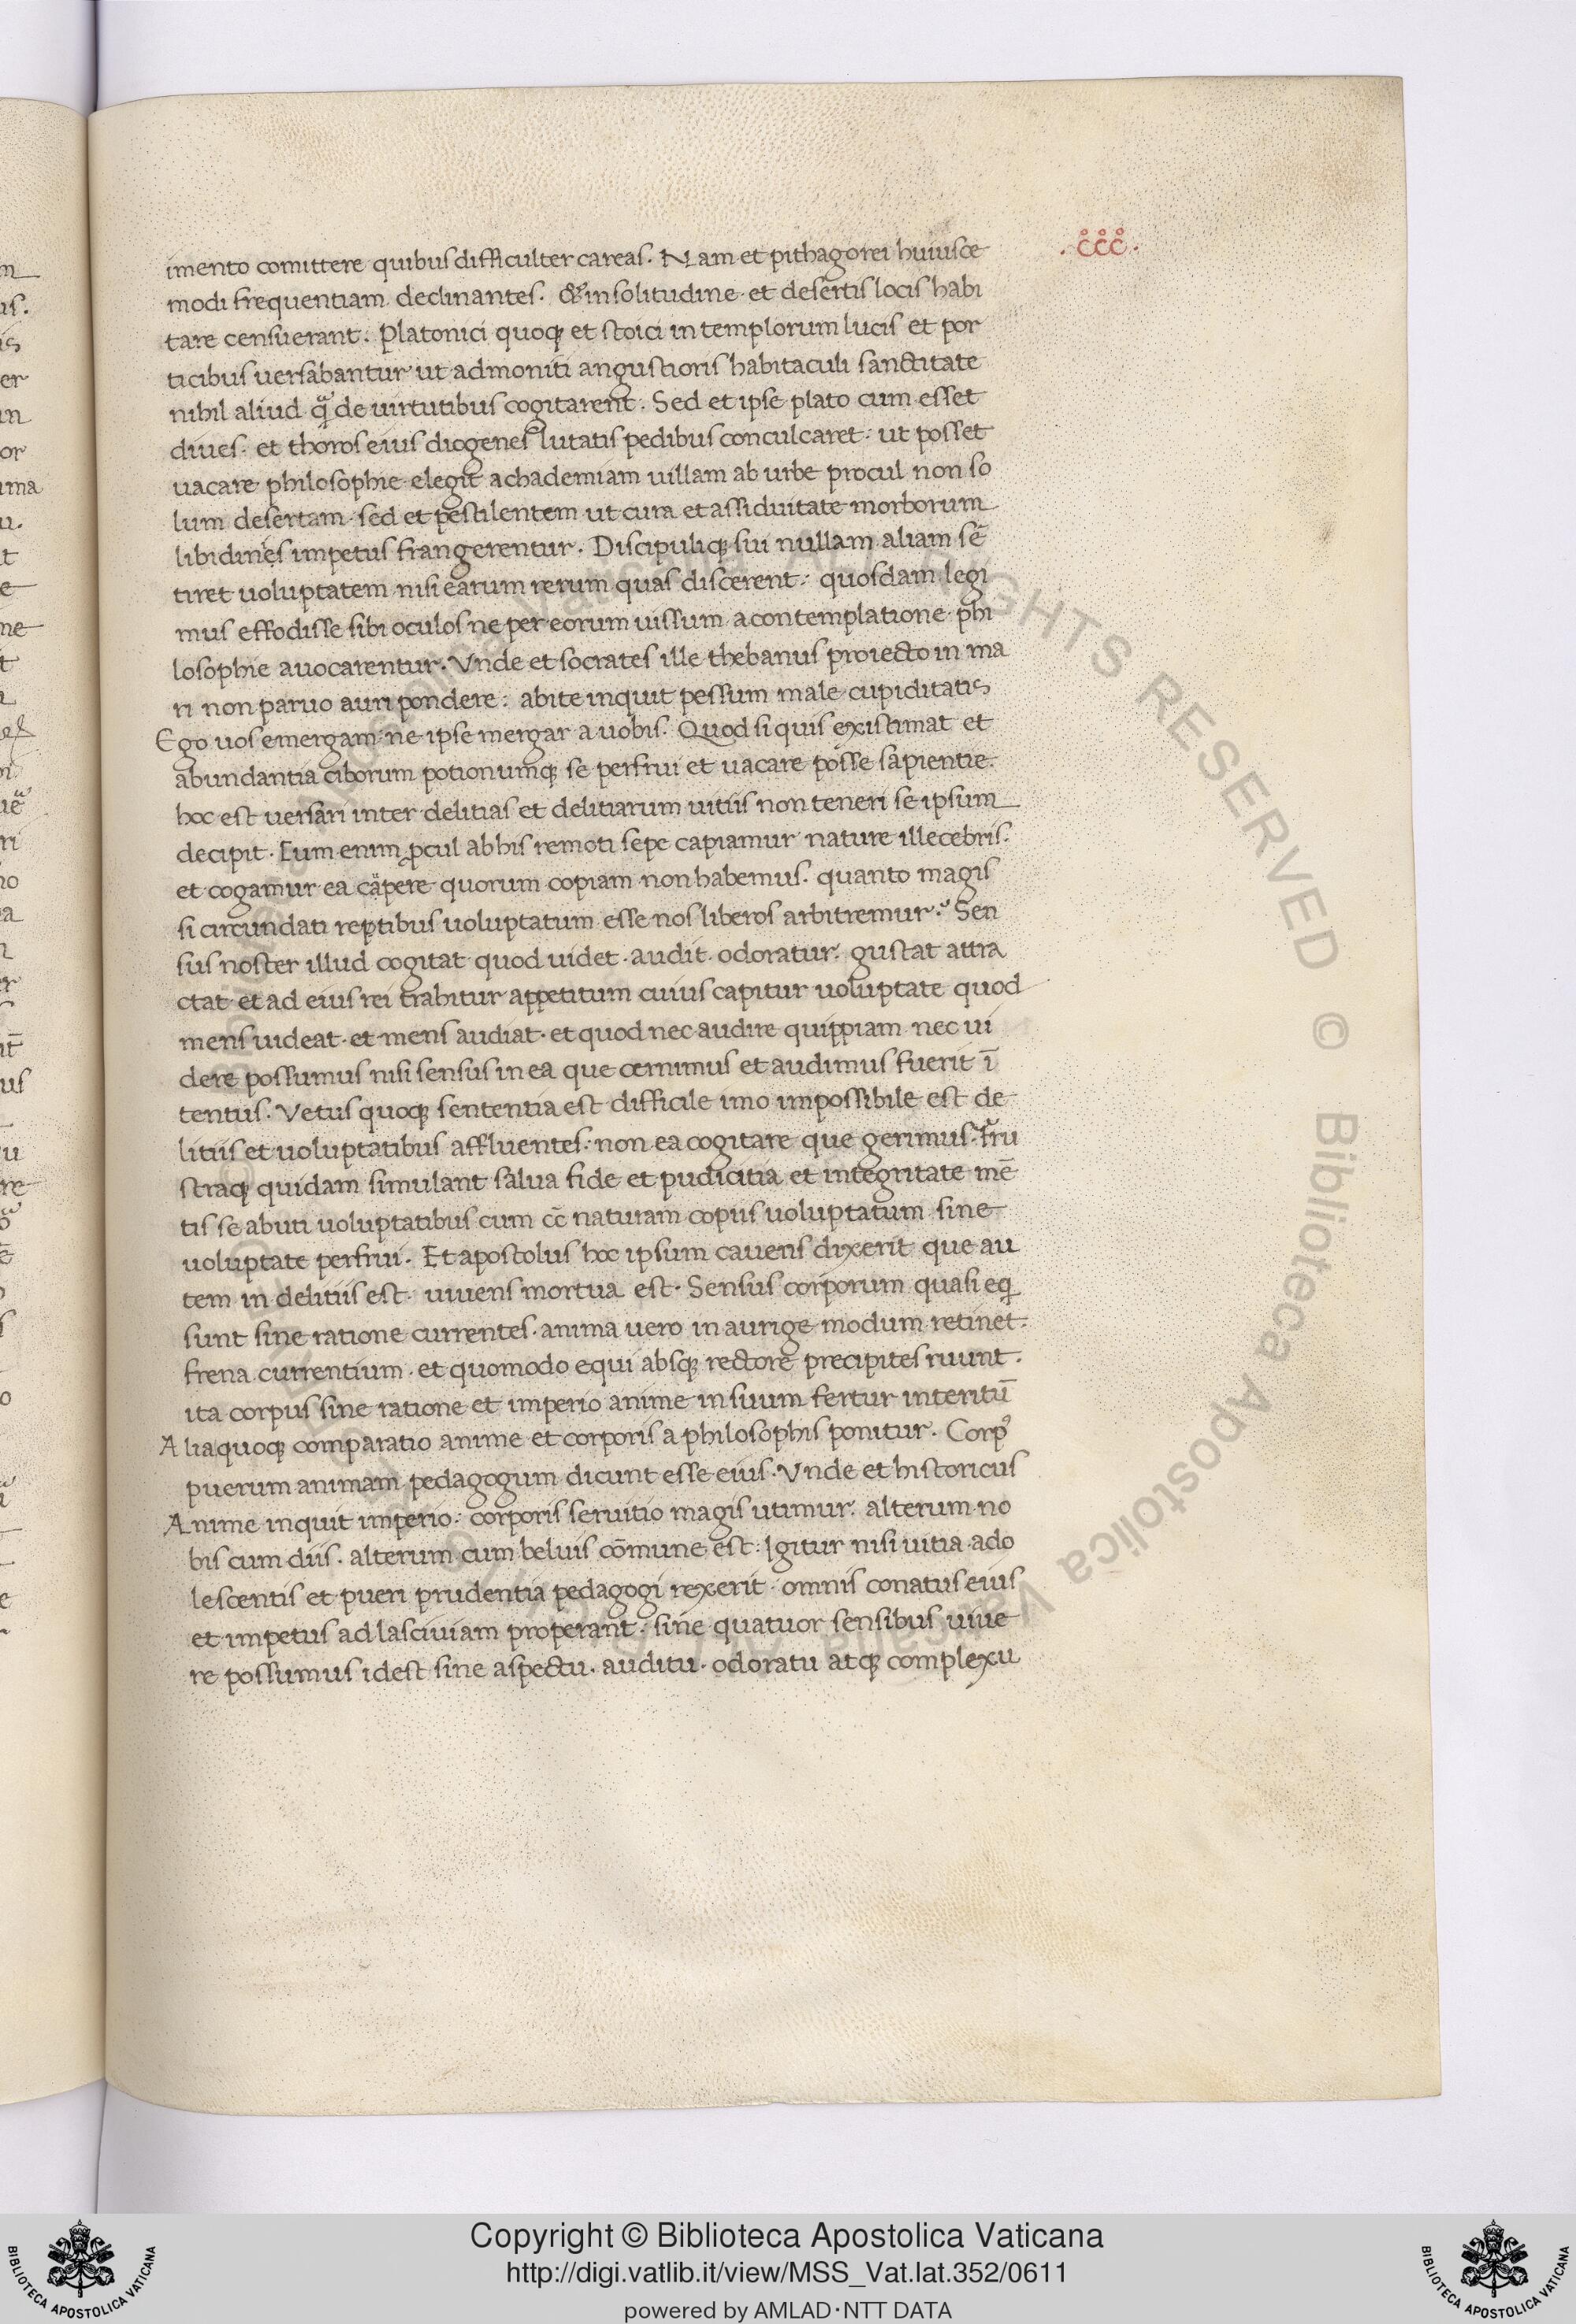 .ccc.
imento comittere quibus difficulter careas. Nam et pithagorei huiusce
modi frequentiam declinantes. in solitudine et desertis locis habi
tare censuerant. Platonici quoqꝫ et stoici in templorum lucis et por
ticibus uersabantur ut admoniti angustioris habitaculi sanctitate
nihil aliud qͣ̃ de uirtutibus cogitarent. Sed et ipse plato cum esset
diues. et thoros eius diogenes lutatis pedibus conculcaret: ut posset
uacare philosophie elegit achademiam uillam ab urbe procul non so
lum desertam sed et pestilentem ut cura et assiduitate morborum
libidines impetus frangerentur. Discipuliqꝫ sui nullam aliam sē
tiret uoluptatem nisi earum rerum quas discerent: quosdam legi
mus effodisse sibi oculos ne per eorum uissum a contemplatione phi
losophie auocarentur. Vnde et socrates ille thebanus proiecto in ma
ri non paruo auri pondere: abite inquit pessum male cupiditatis
Ego uos emergam: ne ipse mergar a uobis. Quod si quis existimat et
abundantia ciborum potionumqꝫ se perfrui et uacare posse sapientie.
hoc est uersari inter delitias et delitiarum uitiis non teneri se ipsum
decipit. Eum enim ꝓcul ab his remoti sepe capiamur nature illecebris.
et cogamur ea cäpere quorum copiam non habemus. quanto magis
si circundati reptibus uoluptatum esse nos liberos arbitremur. Sen
sus noster illud cogitat quod uidet. audit. odoratur. gustat attra
ctat et ad eius rei trahitur appetitum cuius capitur uoluptate quod
mens uideat. et mens audiat. et quod nec audire quippiam nec ui
dere possumus nisi sensus in ea que cernimus et audimus fuerit ī
tentus. Vetus quoqꝫ sententia est difficile imo impossibile est de
litiis et uoluptatibus affluentes: non ea cogitare que gerimus. fru
straqꝫ quidam simulant salua fide et pudicitia et integritate mē
tis se abuti uoluptatibus cum cc̄ naturam copiis uoluptatum sine
uoluptate perfrui. Et apostolus hoc ipsum cauens dixerit que au
tem in delitiis est. uiuens mortua est. Sensus corporum quasi eqⁱ
sunt sine ratione currentes. anima uero in aurige modum retinet.
frena currentium. et quomodo equi absqꝫ rectore precipites ruunt.
ita corpus sine ratione et imperio anime in suum fertur interitū
Alia quoqꝫ comparatio anime et corporis a philosophis ponitur. Corpꝰ
puerum animam pedagogum dicunt esse eius. Vnde et historicus
Anime inquit imperio: corporis seruitio magis utimur. alterum no
bis cum diis. alterum cum beluis cōmune est: Igitur nisi uitia ado
lescentis et pueri prudentia pedagogi rexerit. omnis conatus eius
et impetus ad lasciuiam properant: sine quatuor sensibus uiue
re possumus idest sine aspectu. auditu. odoratu atqꝫ complexu
Copyright © Biblioteca Apostolica Vaticana
http://digi.vatlib.it/view/MSS_Vat.lat.352/0611
powered by AMLAD·NTT DATA